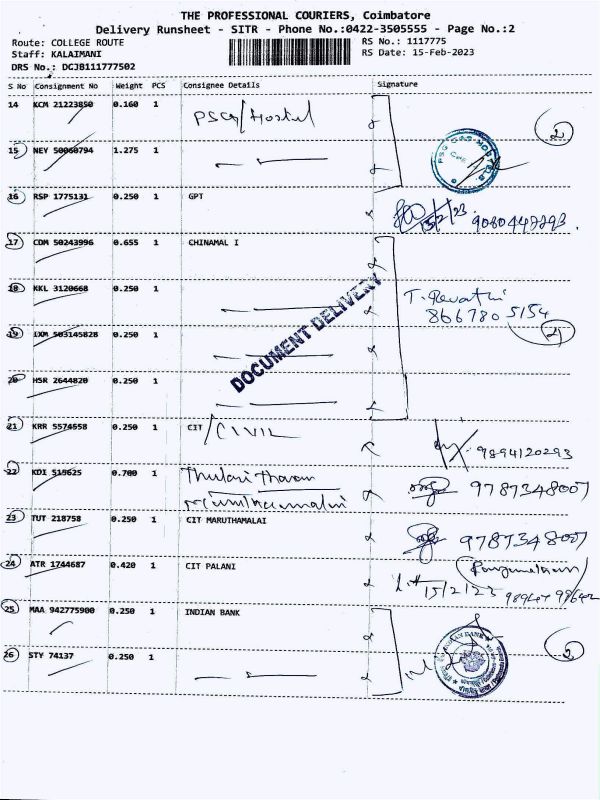 THE PROFESSIONAL COURIERS, Coimbatore
Delivery Runsheet - SITR - Phone No.:0422-3505555 - Page No.:2
Route: COLLEGE ROUTE
Staff: KALAIMANI
DRS No.: DCJB111777502
RS No.: 1117775
RS Date: 15-Feb-2023
S No Consignment No Weight PCS Consignee Details Signature
14 KCM 21223850 0.160 1 PSG/Hostel
2
15 NEY 50060794 1.275 1
PSG HOSTELS
16 RSP 1775131 0.250 1 GPT
15/2/23 9080442293.
17 CDM 50243996 0.655 1 CHINAMAL I
18 KKL 3120668 0.250 1
T. Revathi
866780 5154
4
19 LXM 503145828 0.250 1
DOCUMENT DELIVERY
20 HSR 2644820 0.250 1
21 KRR 5574558 0.250 1 CIT /CIVIL
9894120293
22 KDI 515625 0.700 1 Thulasi Tharan
9787348007
23 TUT 218758 0.250 1 CIT MARUTHAMALAI
9787348007
24 ATR 1744687 0.420 1 CIT PALANI
15/2/23
25 MAA 942775900 0.250 1 INDIAN BANK
26 STY 74137 0.250 1
INDIAN BANK
2